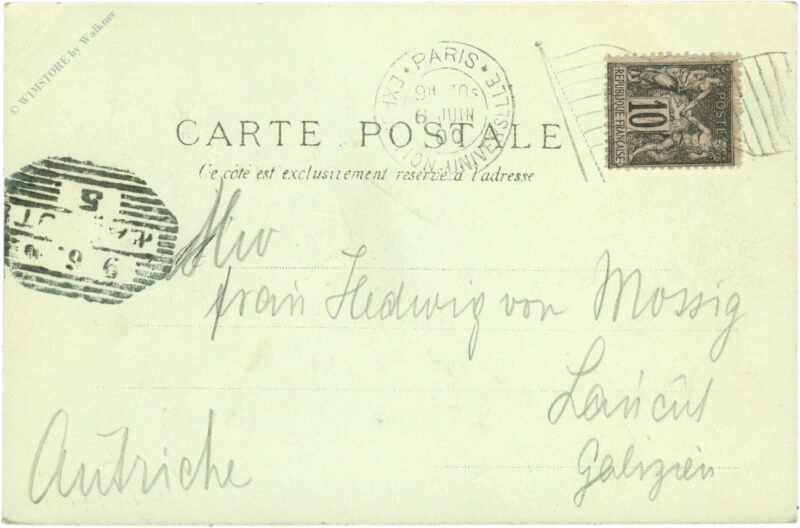 © WIMSTORE by Walkner
PARIS
EXPOSITION UINNENSELLE
9H 10S
6 JUIN
00
POSTE
10
REPUBLIQUE FRANÇAISE
CARTE POSTALE
Ce côté est exclusivement réservé à l'adresse
5
9 6
Frau Hedwig von Mossig
Łańcut
Galizien
Autriche